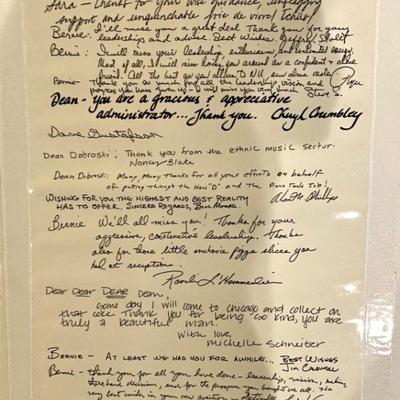 Sara - Thanks for your wise guidance, unflagging
support and unquenchable joie de vivre! Tchüs!
Bernie: I'll miss you a great deal. Thank you for your
leadership and advice. Best wishes.
Bernie: I will miss your leadership enthusiasm, and
Most of all, I will miss having you around as a confidant & close
friend. All the best
Bernie - Thank you so much for all the leadership, vision and
progress you have given us - I will miss you very much. Steve
Dean - you are a gracious & appreciative
administrator... Thank you. Cheryl Crumbley
Dave Gustafson
Dean Dobroski: Thank you from the ethnic music sector.
Nancy Blake
Dean Dobroski: Many, Many thanks for all your efforts on behalf
of putting through the New "D" and the Piano Tech Job!
Alan M. Phillips
Wishing for you the highest and best reality
has to offer. Sincere regards, Bill Moore
Bernie We'll all miss you! Thanks for your
aggressive, constructive leadership. Thanks
also for those little anchovie pizza slices you
had at receptions.
Dear Dear DEAR Dean,
Some day I will come to chicago and collect on
that coke. Thank you for being so kind, you are
truly a beautiful man.
with love,
michelle Schneiter
Bernie - At least we had you for awhile... Best Wishes
Jim
Bernie - thank you for all you have done - leadership, vision, making
those hard decisions, and for the program you bought us all. &
very best wishes in your new position -